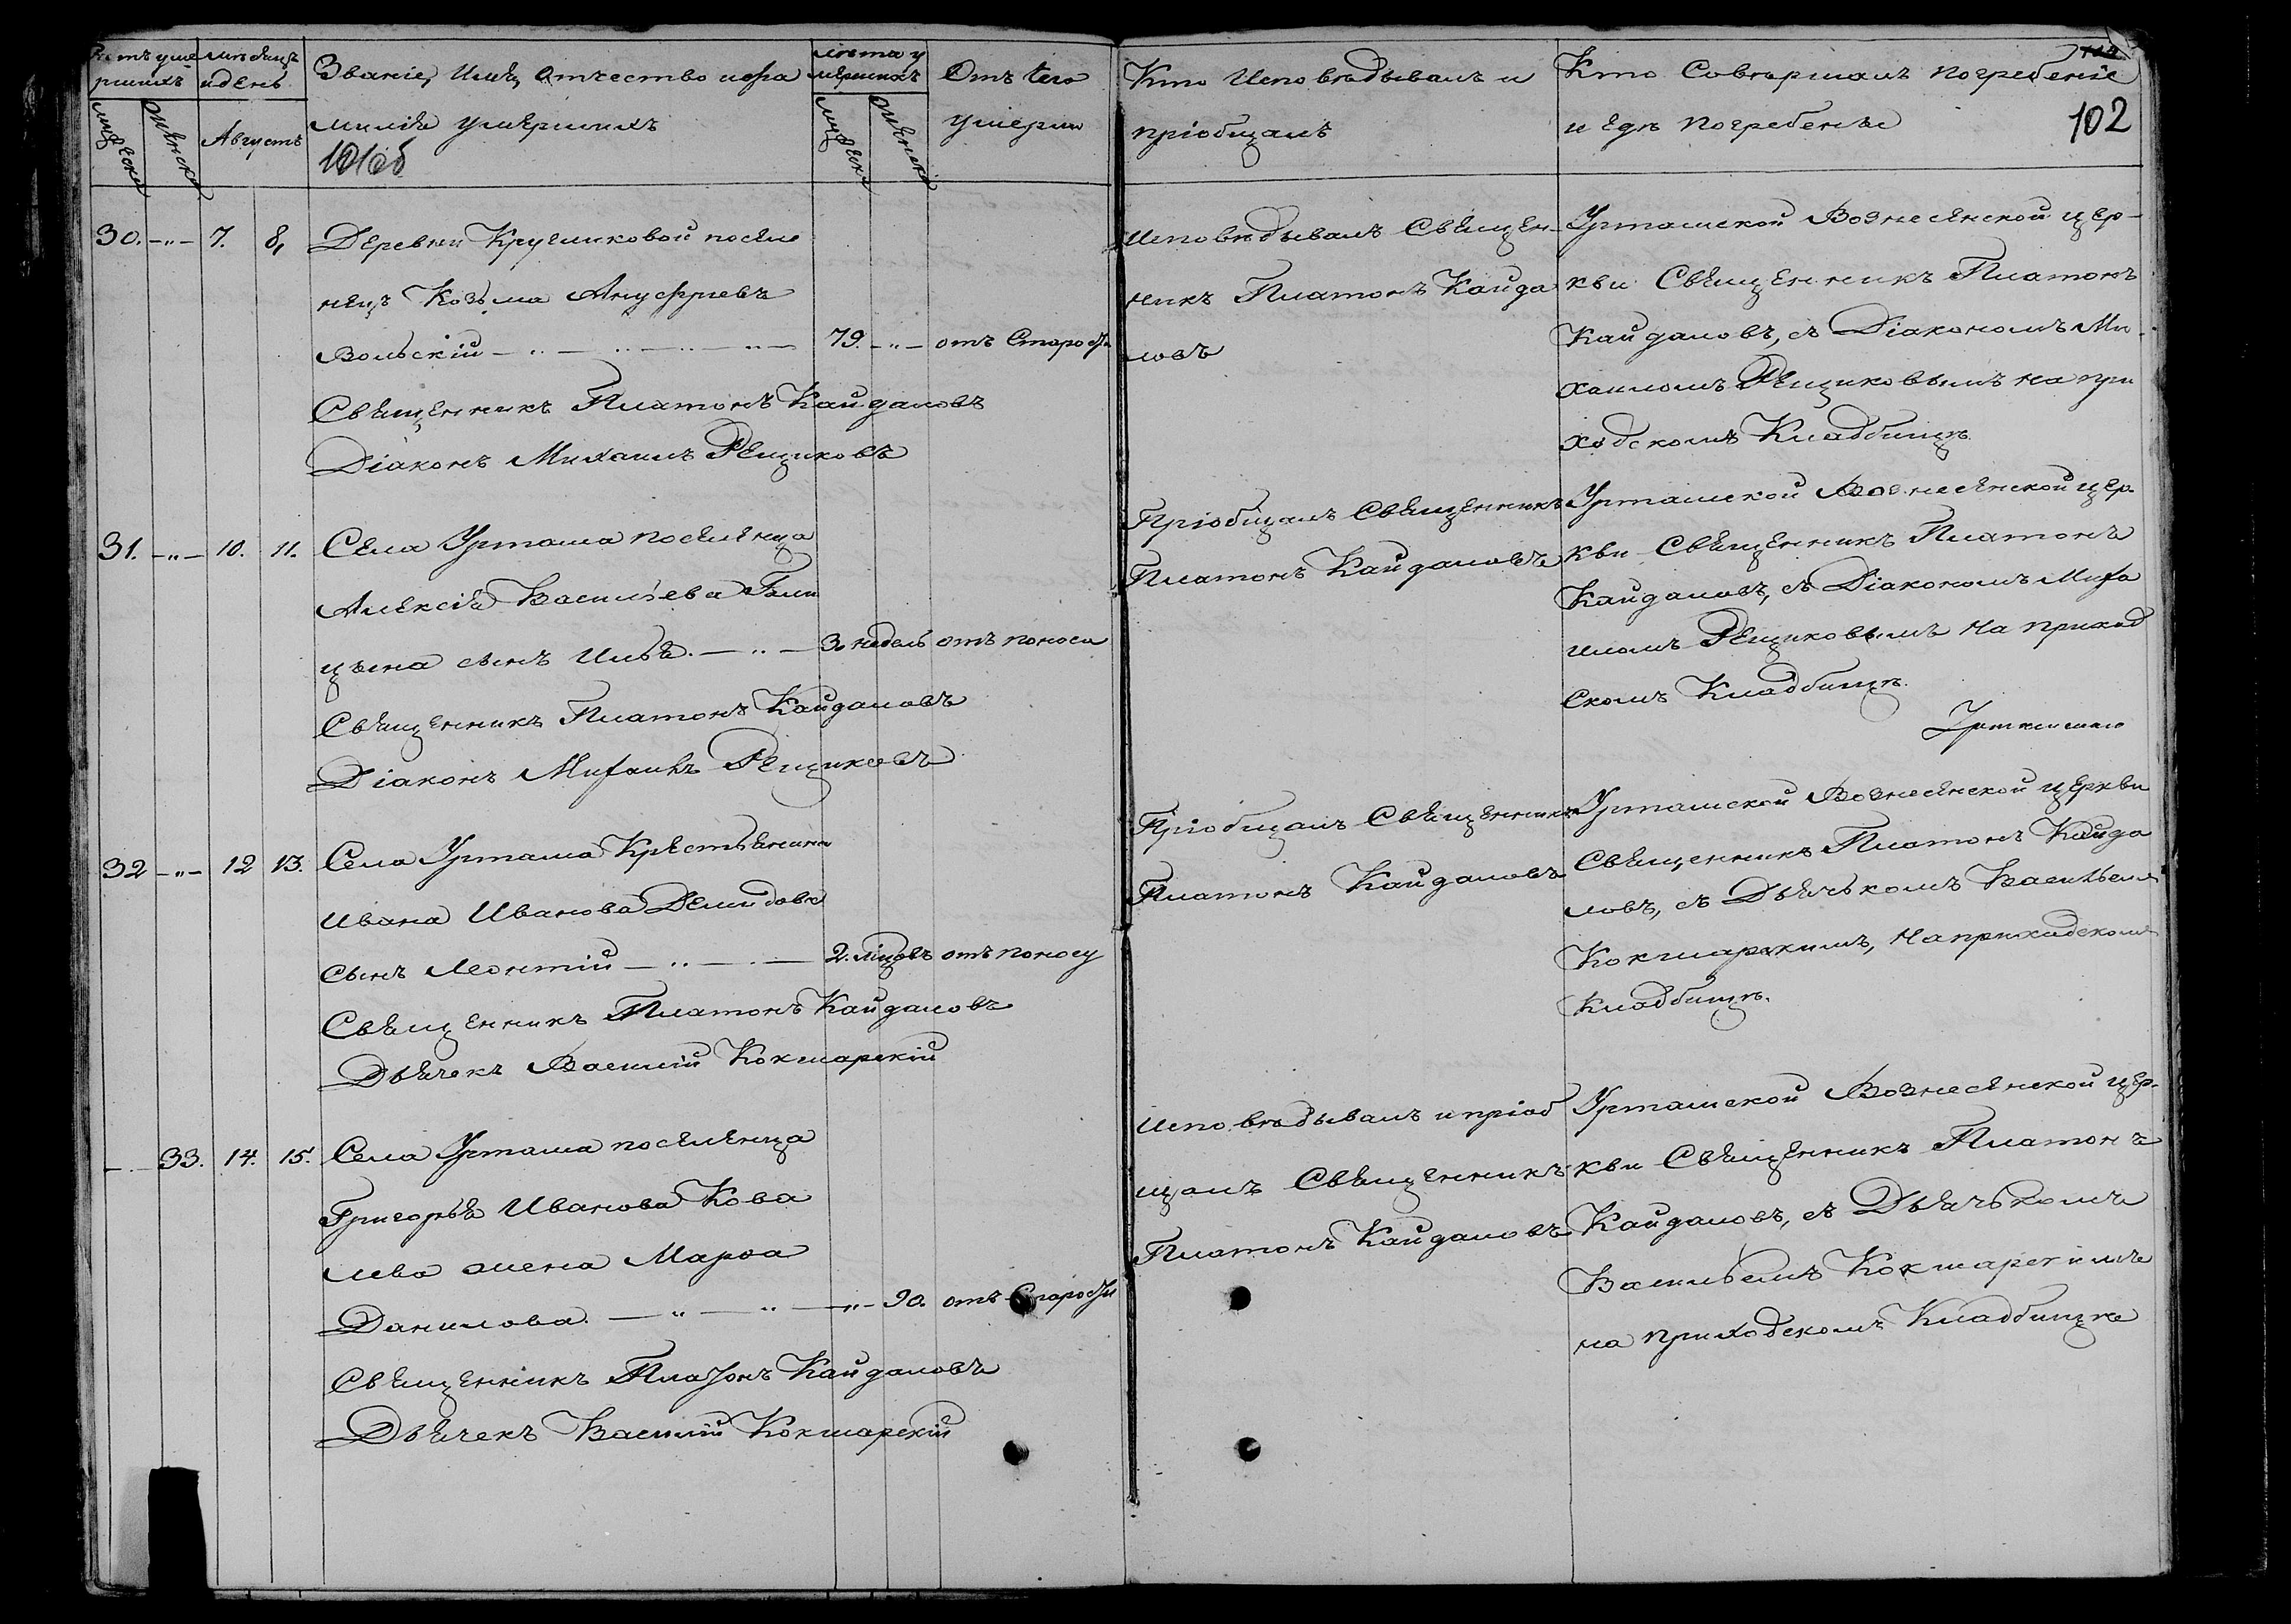 Счетъ уме мѣсяцъ
ршихъ и день
мужеска женска Августъ
Званіе, Имя, Отчество и фа
милія умершихъ
101об
Лѣта у
мершихъ
мужеска женска
Отъ чего
умерли
Кто Исповѣдывалъ и
пріобщалъ
Кто Совершалъ погребеніе
и гдѣ погребены
102
30. -"- 7. 8, Деревни Кругликовой поселе
нецъ Козьма Ануфріевъ
Вольскій 79. -"- отъ Старости
Священникъ Платонъ Кайдаловъ
Діаконъ Михаилъ Рещиковъ
Исповѣдывалъ Священ-
никъ Платонъ Кайда
ловъ
Уртамской Вознесенской цер-
кви Священникъ Платонъ
Кайдаловъ, съ Діакономъ Ми-
хаиломъ Рещиковымъ на при
ходскомъ Кладбищѣ.
31. -"- 10. 11. Села Уртама поселенца
Алексѣя Васильева Гали
цына сынъ Илья. 3. недель отъ поноса
Священникъ Платонъ Кайдаловъ
Діаконъ Михаилъ Рещиковъ
Пріобщалъ Священникъ
Платонъ Кайдаловъ
Уртамской Вознесенской цер-
кви Священникъ Платонъ
Кайдаловъ, съ Діакономъ Миха
иломъ Рещиковымъ на приход
скомъ Кладбищѣ.
32 -"- 12 13. Села Уртама Крестьянина
Ивана Иванова Демидова
сынъ Леонтій 2. мѣсцовъ отъ поносу
Священникъ Платонъ Кайдаловъ
Дьячекъ Василій Кокшарскій
Пріобщалъ Священникъ
Платонъ Кайдаловъ
Уртамской Вознесенской церкви
Священникъ Платонъ Кайда
ловъ, съ Дьячькомъ Васильемъ
Кокшарскимъ, на приходскомъ
Кладбищѣ.
33. 14. 15. Села Уртама поселенца
Григорья Иванова Кова
лева жена Марфа
Данилова. -"- 90. отъ Старости
Священникъ Платонъ Кайдаловъ
Дьячекъ Василій Кокшарскій
Исповѣдывалъ и пріоб
щалъ Священникъ
Платонъ Кайдаловъ
Уртамской Вознесенской цер-
кви Священникъ Платонъ
Кайдаловъ, съ Дьячькомъ
Васильемъ Кокшарскимъ
на приходскомъ Кладбищѣ